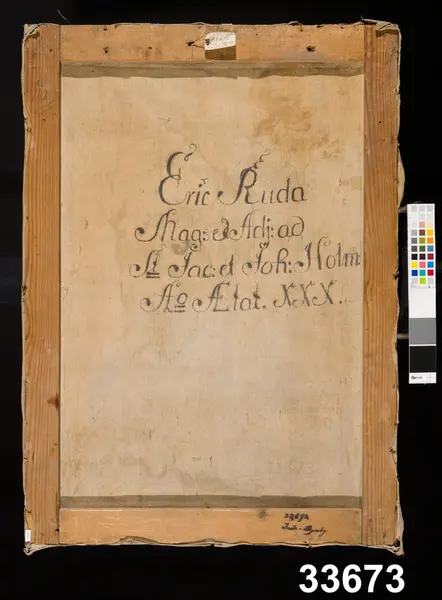 Eric Ruda
Mag: et Adj: ad
St Jac: et Joh: Holm:
Ao Ætat. XXX.
33673